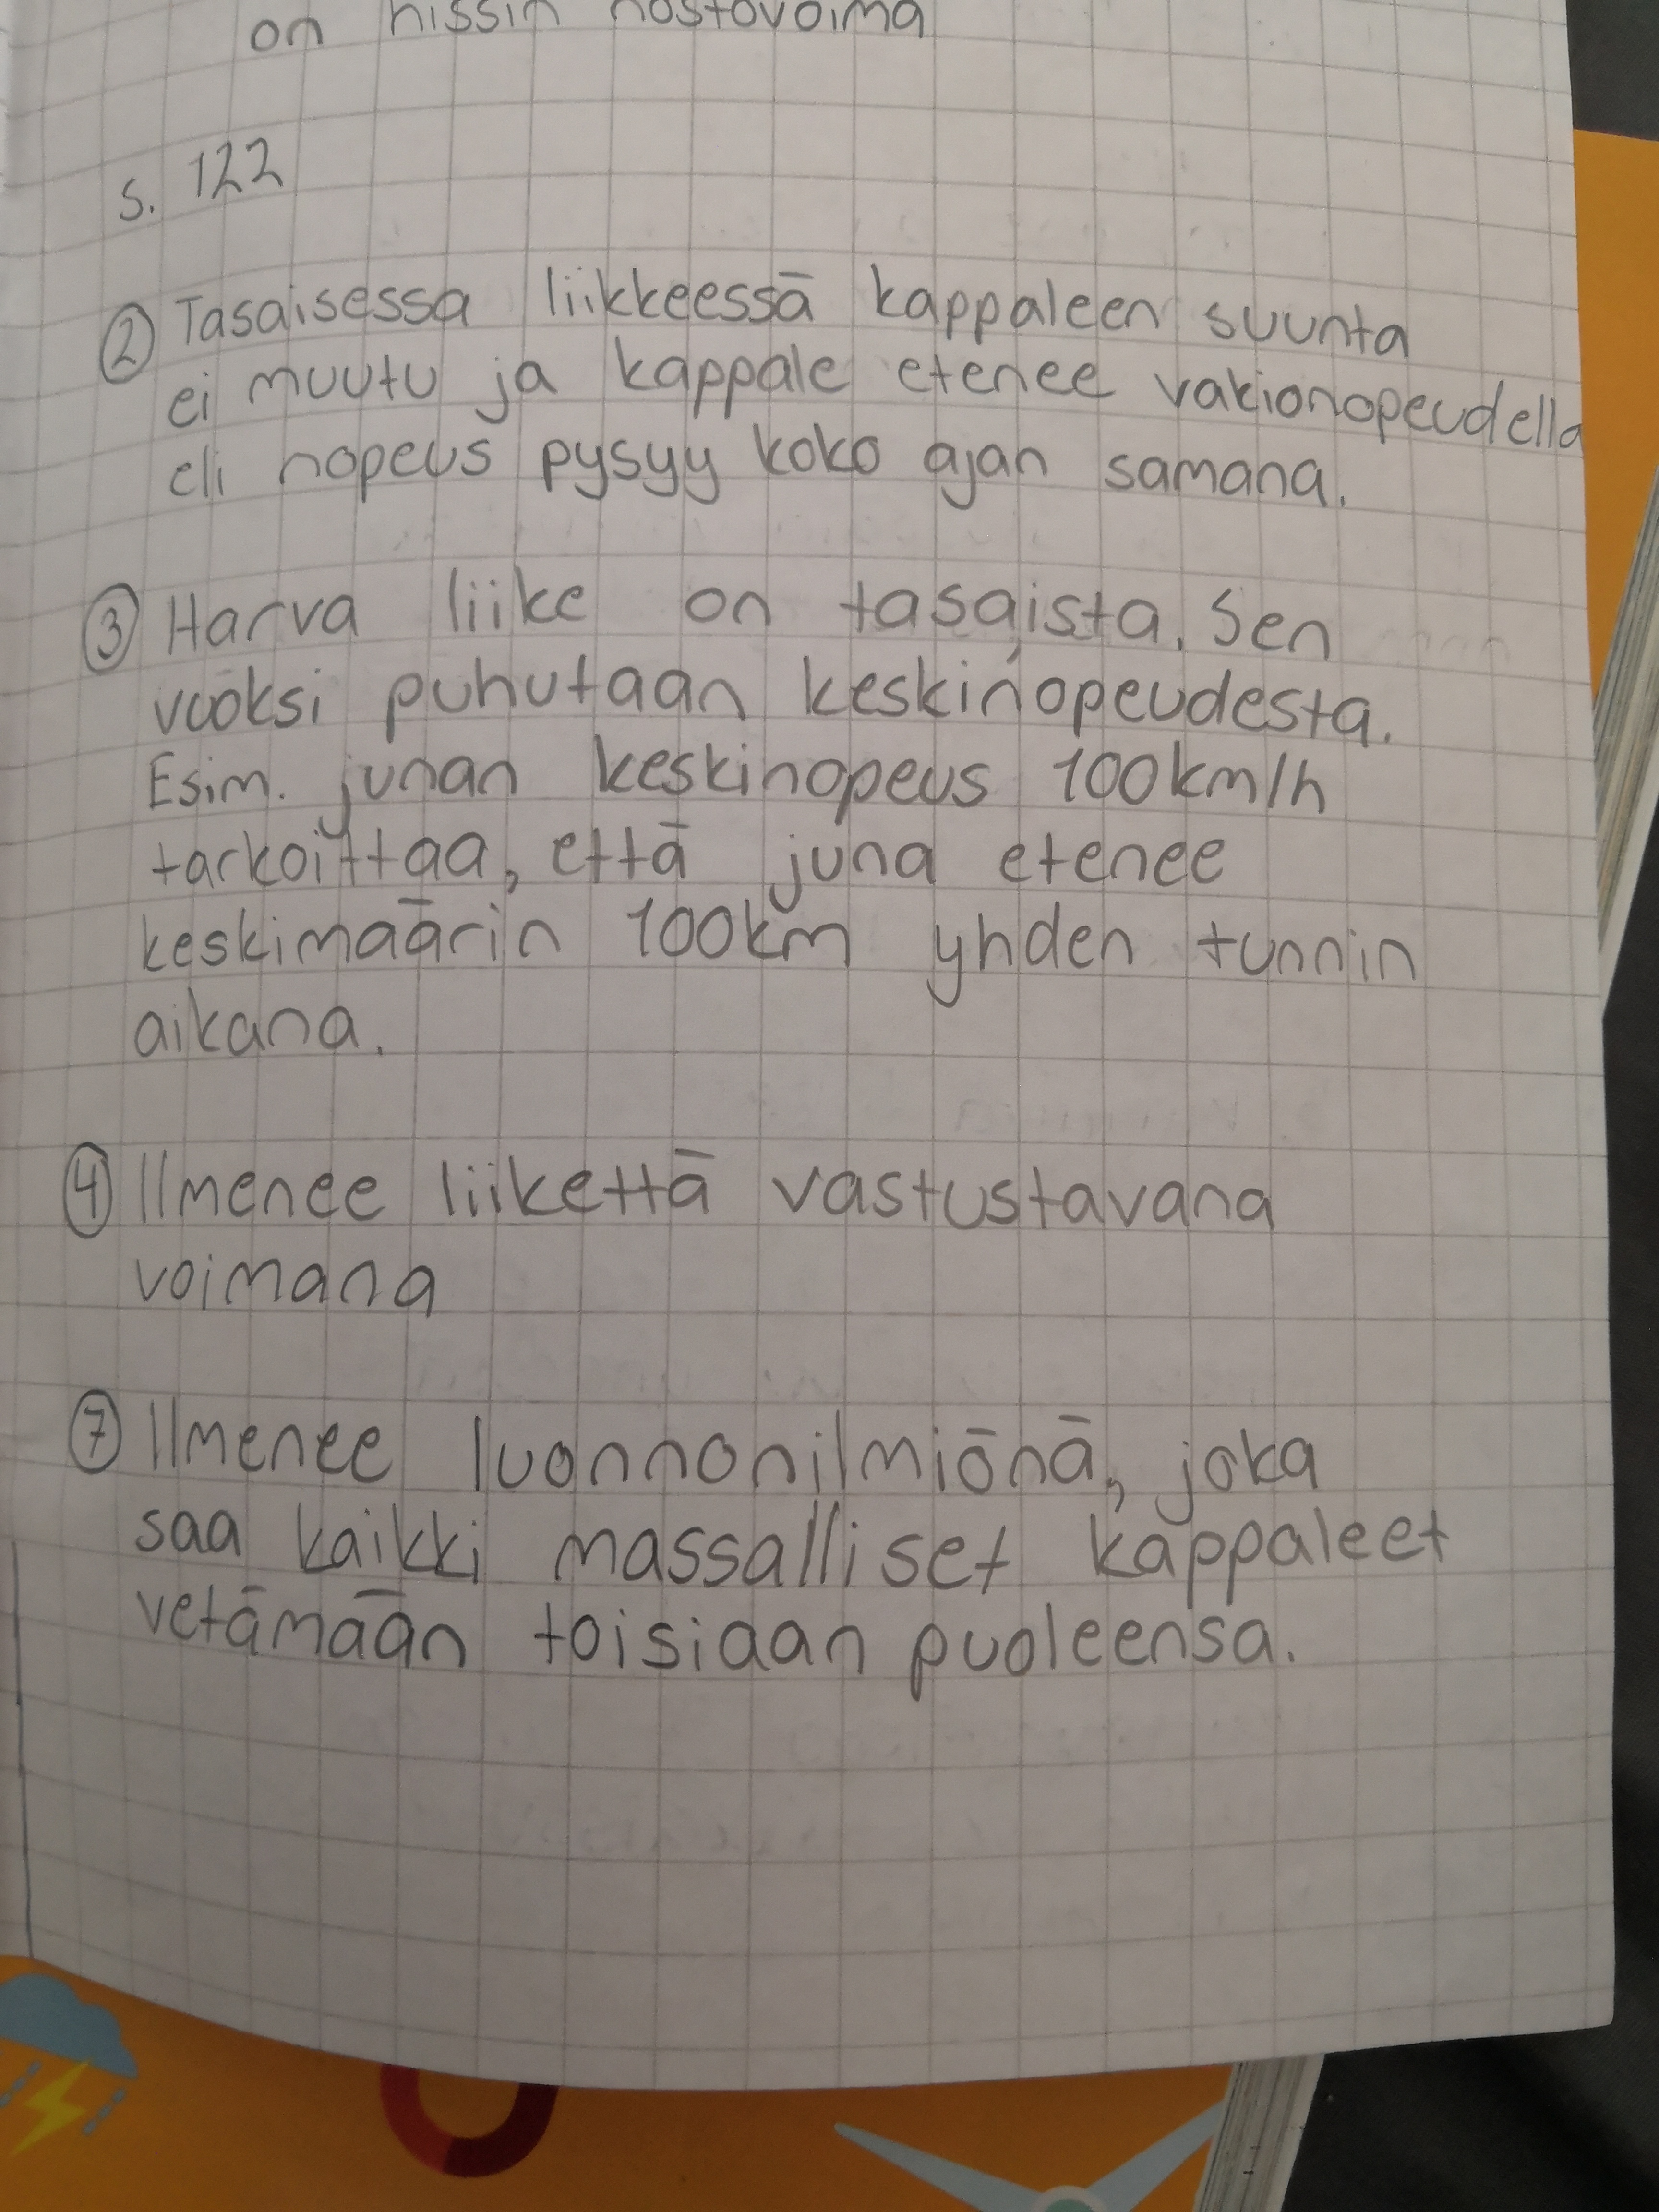 on hissin nostovoima
s. 122
② Tasaisessa liikkeessä kappaleen suunta
ei muutu ja kappale etenee vakionopeudella
eli nopeus pysyy koko ajan samana.
③ Harva liike on tasaista. Sen
vuoksi puhutaan keskinopeudesta.
Esim. junan keskinopeus 100km/h
tarkoittaa, että juna etenee
keskimäärin 100km yhden tunnin
aikana.
④ Ilmenee liikettä vastustavana
voimana
⑦ Ilmenee luonnonilmiönä, joka
saa kaikki massalliset kappaleet
vetämään toisiaan puoleensa.